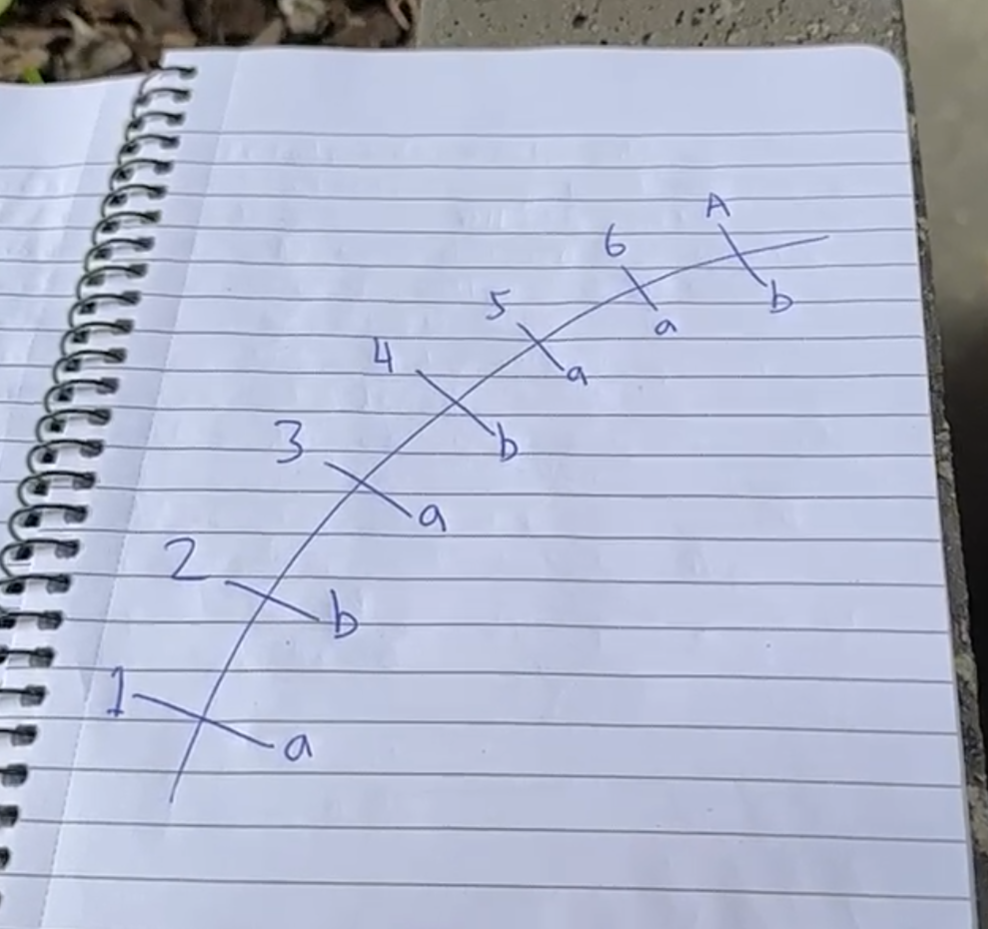 A
b
6
a
5
a
4
b
3
a
2
b
1
a